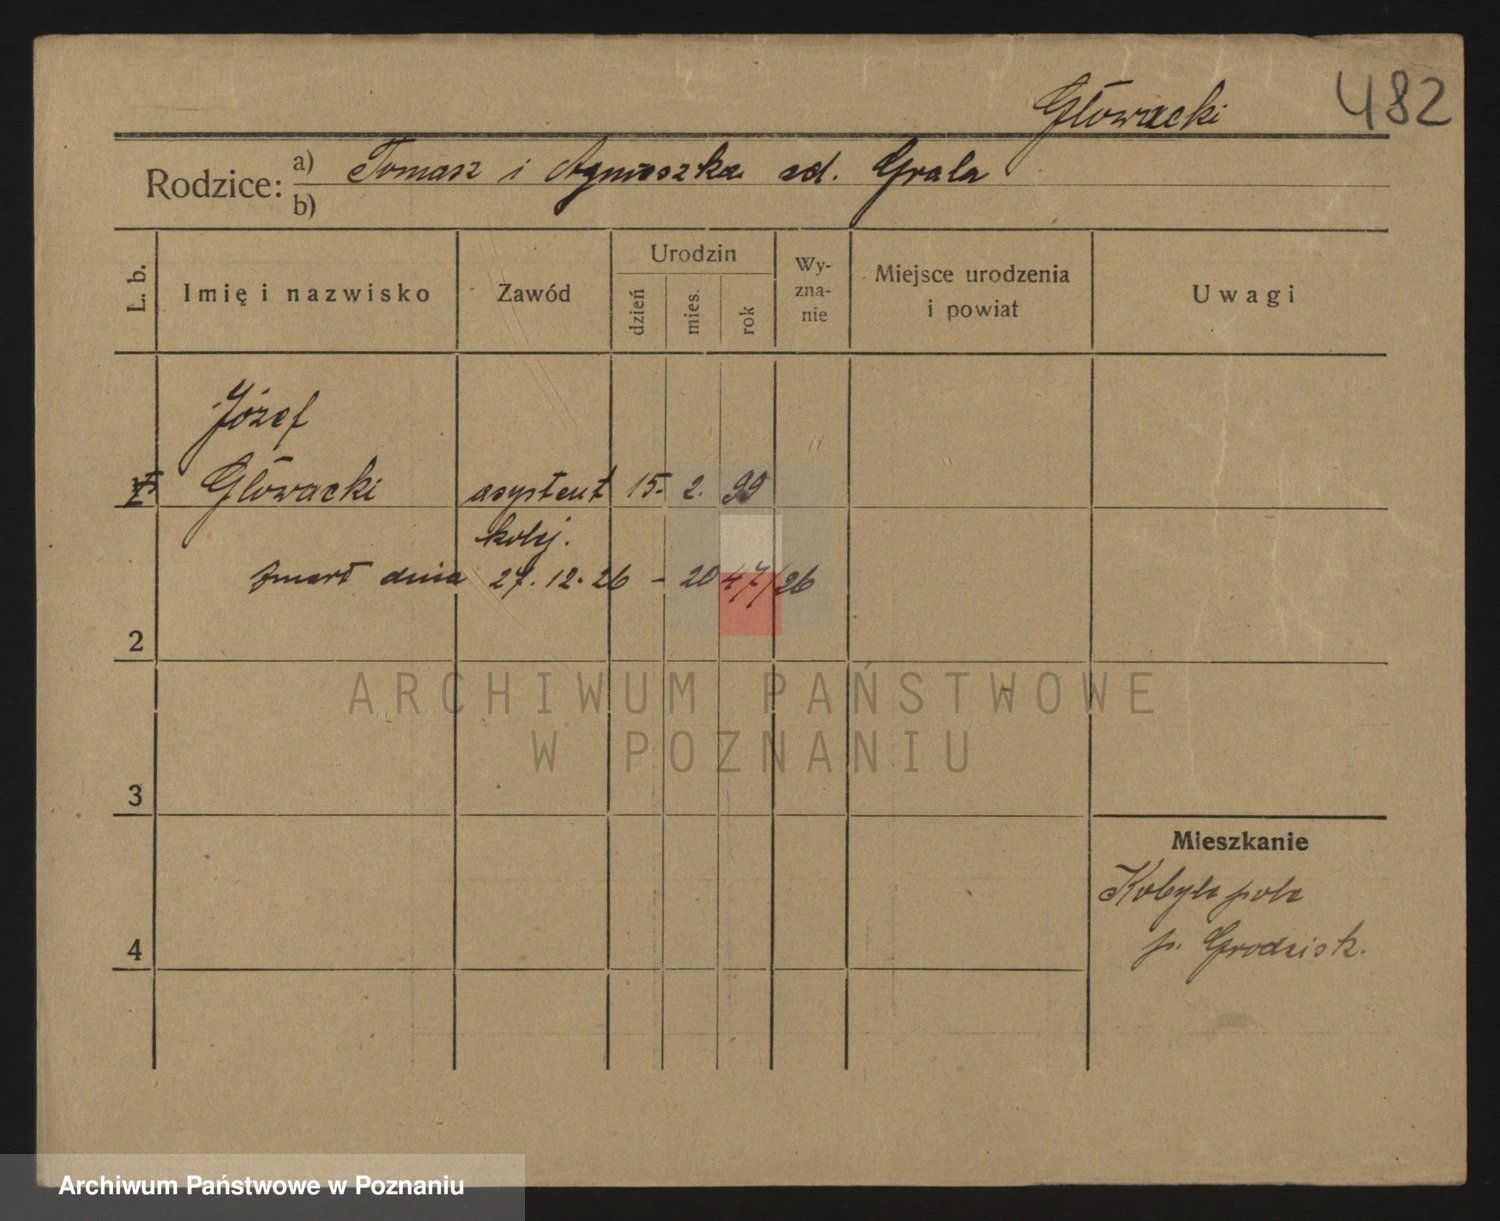 Głowacki 482
Rodzice: a) Tomasz i Agnieszka zd. Grala
b)
L. b. Imię i nazwisko Zawód Urodzin dzień mies. rok Wy-zna-nie Miejsce urodzenia i powiat Uwagi
Józef
1 Głowacki asystent 15. 2. 99
kolej.
zmarł dnia 27.12.26 – 2047/26
2
ARCHIWUM PAŃSTWOWE
W POZNANIU
3
Mieszkanie
Kobylepole
4
p. Grodzisk.
Archiwum Państwowe w Poznaniu